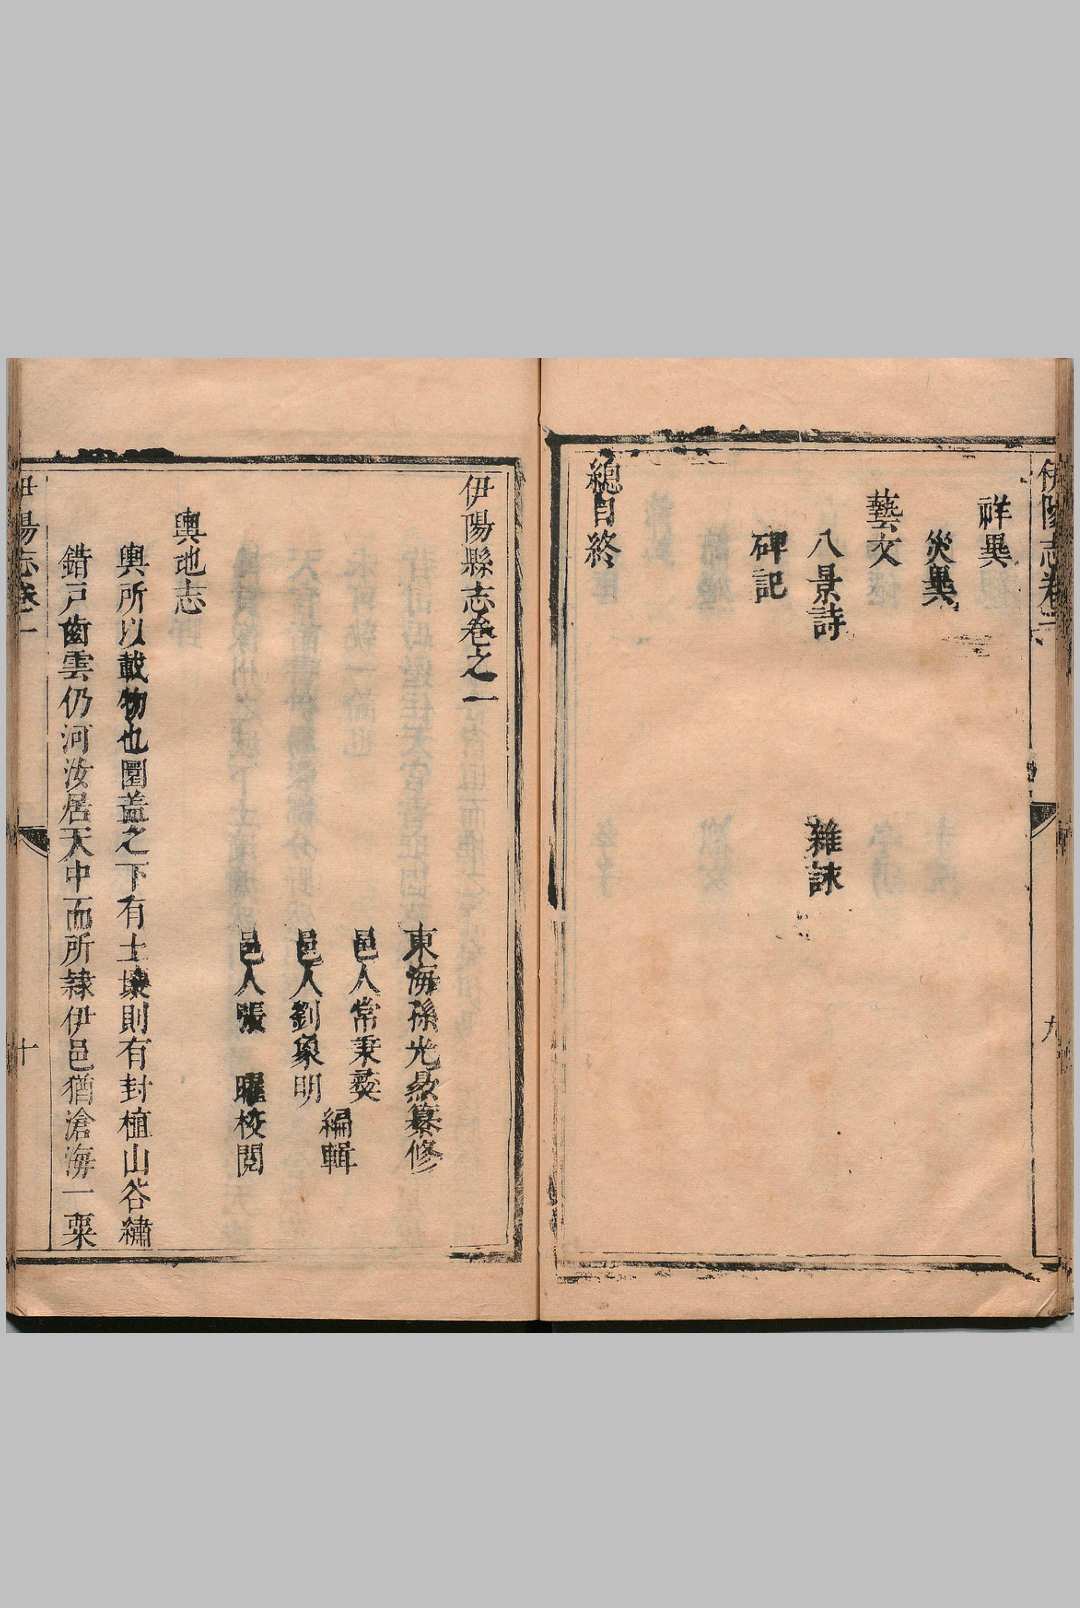 伊陽志卷三
九
祥異
災異
藝文
八景詩 雜誄
碑記
總目終
伊陽縣志卷之一
東海孫光㷇纂修
邑人常秉彝
編輯
邑人劉象明
邑人張 曜校閲
輿地志
輿所以載物也圜蓋之下有土壤則有封植山谷繡
錯戸齒雲仍河汝居天中而所隷伊邑猶滄海一粟
伊陽志卷一
十